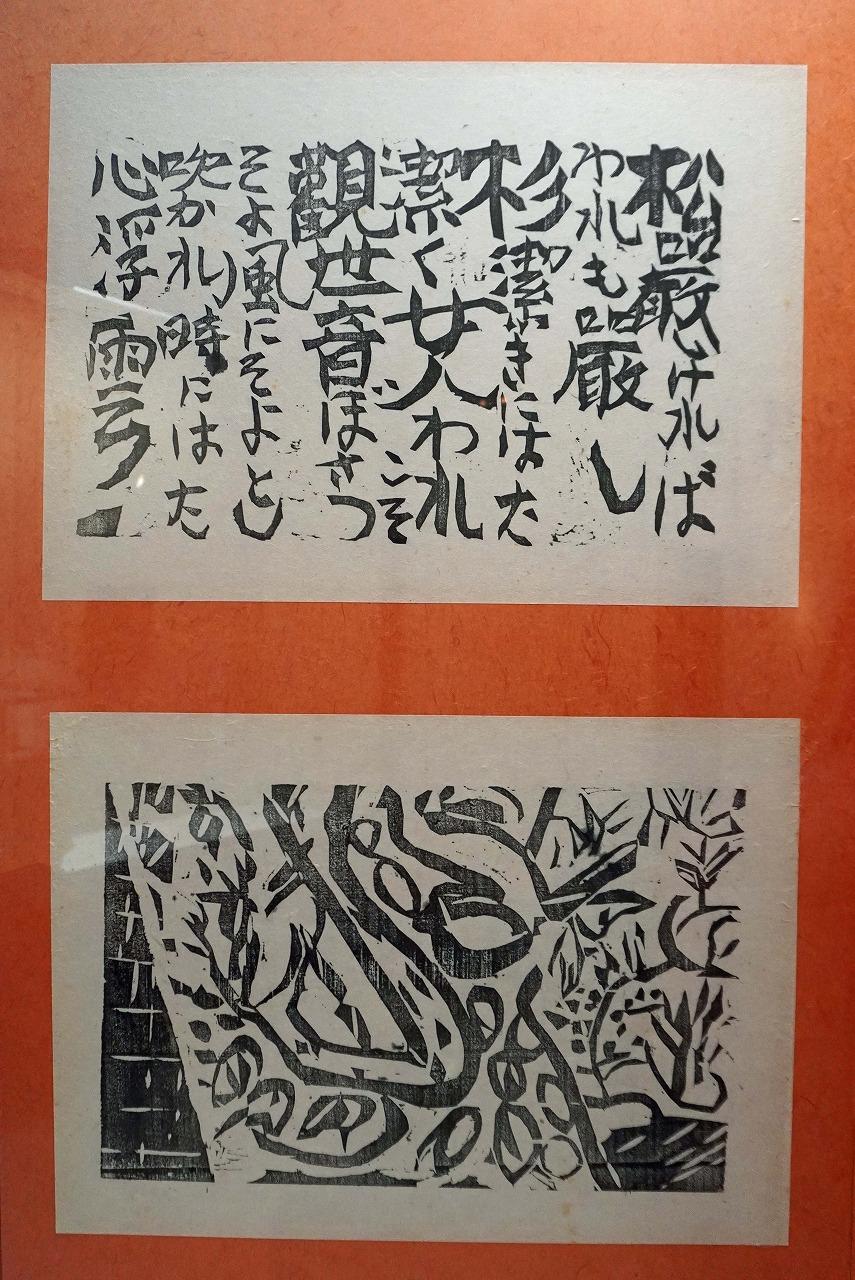 松嚴しければ
われも嚴し
杉潔きにはた
潔く女人われこそ
觀世音ぼさつ
そよ風にそよとし
吹かれ時にはた
心浮雲